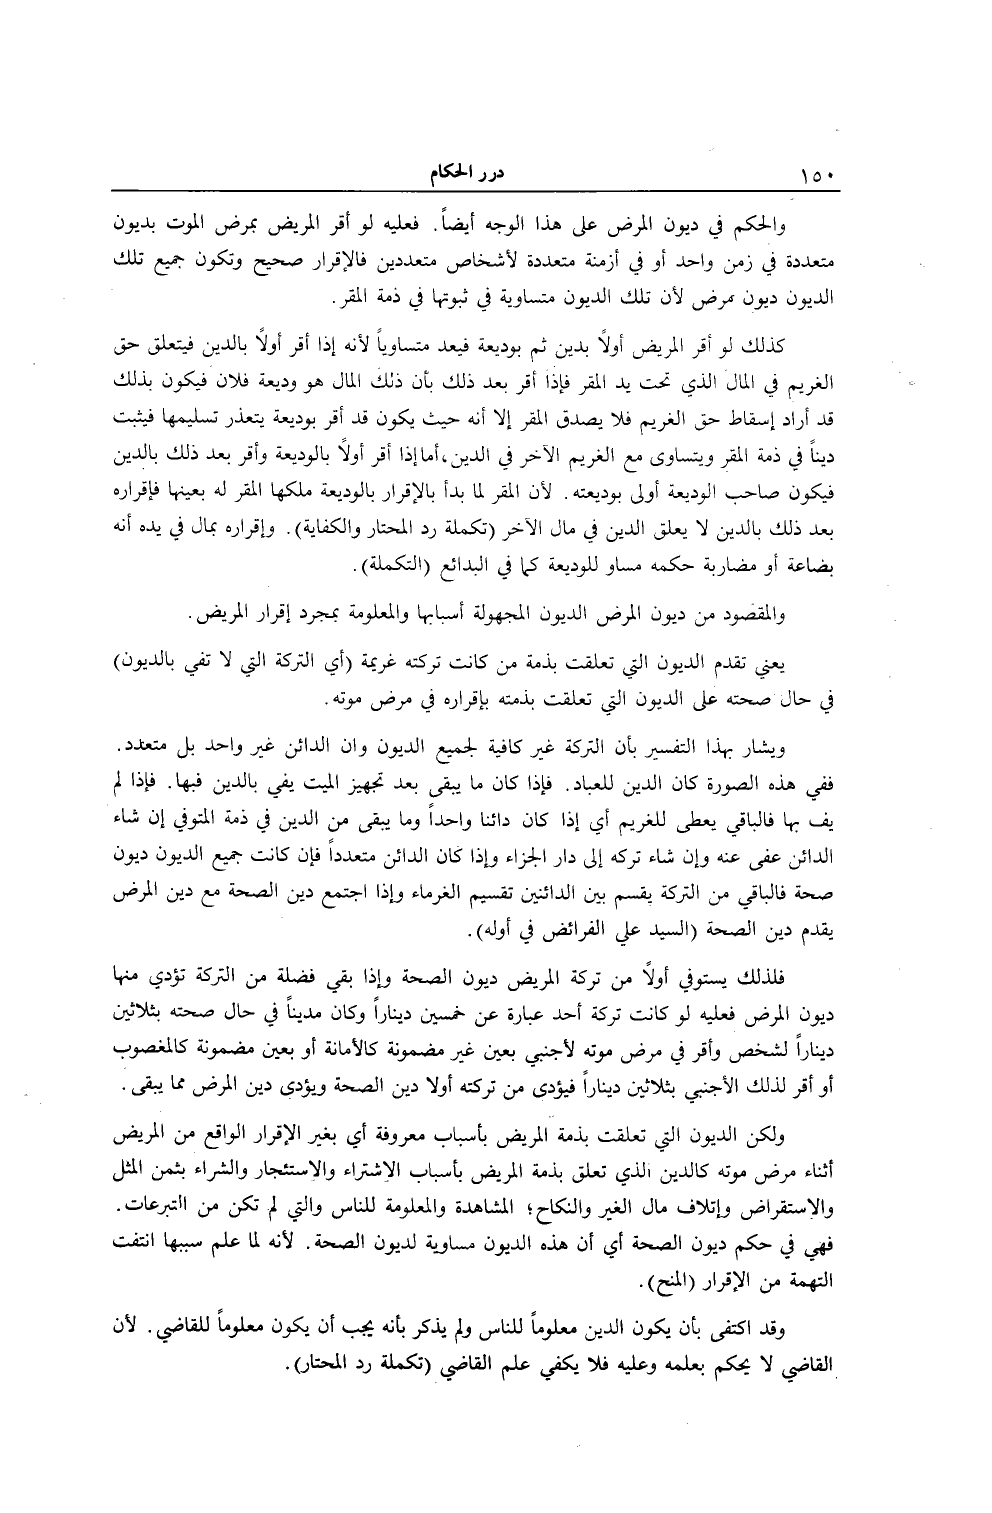 ١٥٠
درر الحكام
والحكم في ديون المرض على هذا الوجه أيضاً. فعليه لو أقر المريض بمرض الموت بديون
متعددة في زمن واحد أو في أزمنة متعددة لأشخاص متعددين فالإقرار صحيح وتكون جميع تلك
الديون ديون مرض لأن تلك الديون متساوية في ثبوتها في ذمة المقر.
كذلك لو أقر المريض أولاً بدين ثم بوديعة فيعد متساوياً لأنه إذا أقر أولاً بالدين فيتعلق حق
الغريم في المال الذي تحت يد المقر فإذا أقر بعد ذلك بأن ذلك المال هو وديعة فلان فيكون بذلك
قد أراد إسقاط حق الغريم فلا يصدق المقر إلا أنه حيث يكون قد أقر بوديعة يتعذر تسليمها فيثبت
ديناً في ذمة المقر ويتساوى مع الغريم الآخر في الدين، أما إذا أقر أولاً بالوديعة وأقر بعد ذلك بالدين
فيكون صاحب الوديعة أولى بوديعته. لأن المقر لما بدأ بالإقرار بالوديعة ملكها المقر له بعينها فإقراره
بعد ذلك بالدين لا يعلق الدين في مال الآخر (تكملة رد المحتار والكفاية). وإقراره بمال في يده أنه
بضاعة أو مضاربة حكمه مساو للوديعة كما في البدائع (التكملة).
والمقصود من ديون المرض الديون المجهولة أسبابها والمعلومة بمجرد إقرار المريض.
يعني تقدم الديون التي تعلقت بذمة من كانت تركته غريمة (أي التركة التي لا تفي بالديون)
في حال صحته على الديون التي تعلقت بذمته بإقراره في مرض موته.
ويشار بهذا التفسير بأن التركة غير كافية لجميع الديون وان الدائن غير واحد بل متعدد.
ففي هذه الصورة كان الدين للعباد. فإذا كان ما يبقى بعد تجهيز الميت يفي بالدين فبها. فإذا لم
يف بها فالباقي يعطى للغريم أي إذا كان دائنا واحداً وما يبقى من الدين في ذمة المتوفي إن شاء
الدائن عفى عنه وإن شاء تركه إلى دار الجزاء وإذا كان الدائن متعدداً فإن كانت جميع الديون ديون
صحة فالباقي من التركة يقسم بين الدائنين تقسيم الغرماء وإذا اجتمع دين الصحة مع دين المرض
يقدم دين الصحة (السيد علي الفرائض في أوله).
فلذلك يستوفي أولاً من تركة المريض ديون الصحة وإذا بقي فضلة من التركة تؤدي منها
ديون المرض فعليه لو كانت تركة أحد عبارة عن خمسين ديناراً وكان مديناً في حال صحته بثلاثين
ديناراً لشخص وأقر في مرض موته لأجنبي بعين غير مضمونة كالأمانة أو بعين مضمونة كالمغصوب
أو أقر لذلك الأجنبي بثلاثين ديناراً فيؤدى من تركته أولا دين الصحة ويؤدى دين المرض مما يبقى.
ولكن الديون التي تعلقت بذمة المريض بأسباب معروفة أي بغير الإقرار الواقع من المريض
أثناء مرض موته كالدين الذي تعلق بذمة المريض بأسباب الاشتراء والاستئجار والشراء بثمن المثل
والاستقراض وإتلاف مال الغير والنكاح؛ المشاهدة والمعلومة للناس والتي لم تكن من التبرعات.
فهي في حكم ديون الصحة أي أن هذه الديون مساوية لديون الصحة. لأنه لما علم سببها انتفت
التهمة من الإقرار (المنح).
وقد اكتفى بأن يكون الدين معلوماً للناس ولم يذكر بأنه يجب أن يكون معلوماً للقاضي. لأن
القاضي لا يحكم بعلمه وعليه فلا يكفي علم القاضي (تكملة رد المحتار).